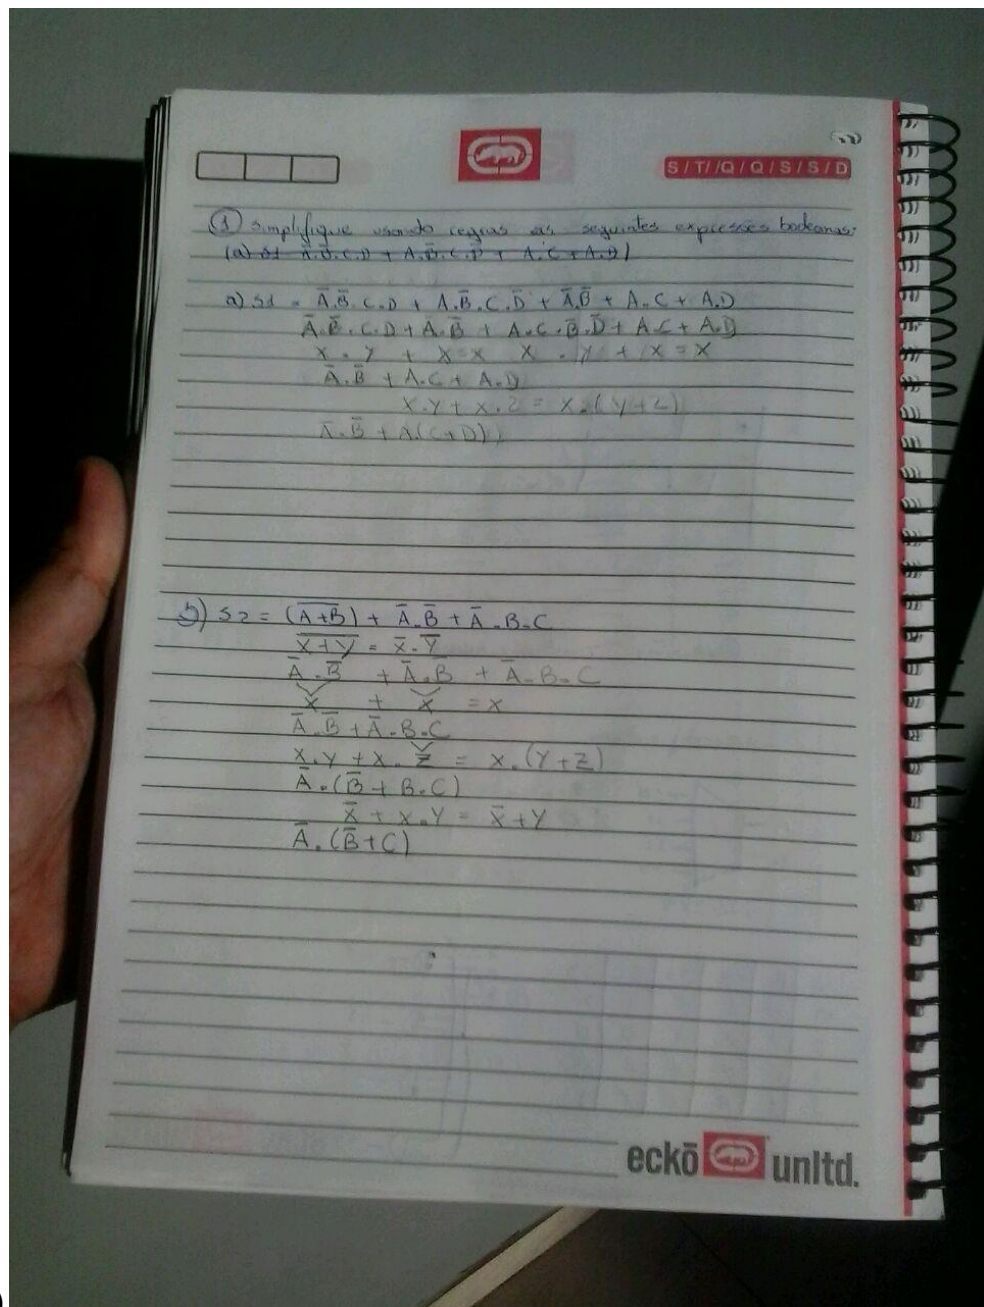 S/T//Q/Q/S/S/D
① Simplifique usando regras as seguintes expressões booleanas:
(a) S1 A̅.B̅.C.D + A.B̅.C.D̅ + A.C + A.D)
a) S1 = A̅.B̅.C.D + A.B̅.C.D̅ + A̅.B̅ + A.C + A.D
A̅.B̅.C.D + A̅.B̅ + A.C.B̅.D̅ + A.C + A.D
X.Y + X = X X.Y + X = X
A̅.B̅ + A.C + A.D
X.Y + X.Z = X.(Y+Z)
A̅.B̅ + A.(C+D)
S2 = (A̅+̅B̅) + A̅.B̅ + A̅.B.C
X̅+̅Y̅ = X̅.Y̅
A̅.B̅ + A̅.B̅ + A̅.B.C
X + X = X
A̅.B̅ + A̅.B.C
X.Y + X.Z = X.(Y+Z)
A̅.(B̅ + B.C)
X̅ + X.Y = X̅+Y
A̅.(B̅+C)
eckō unltd.